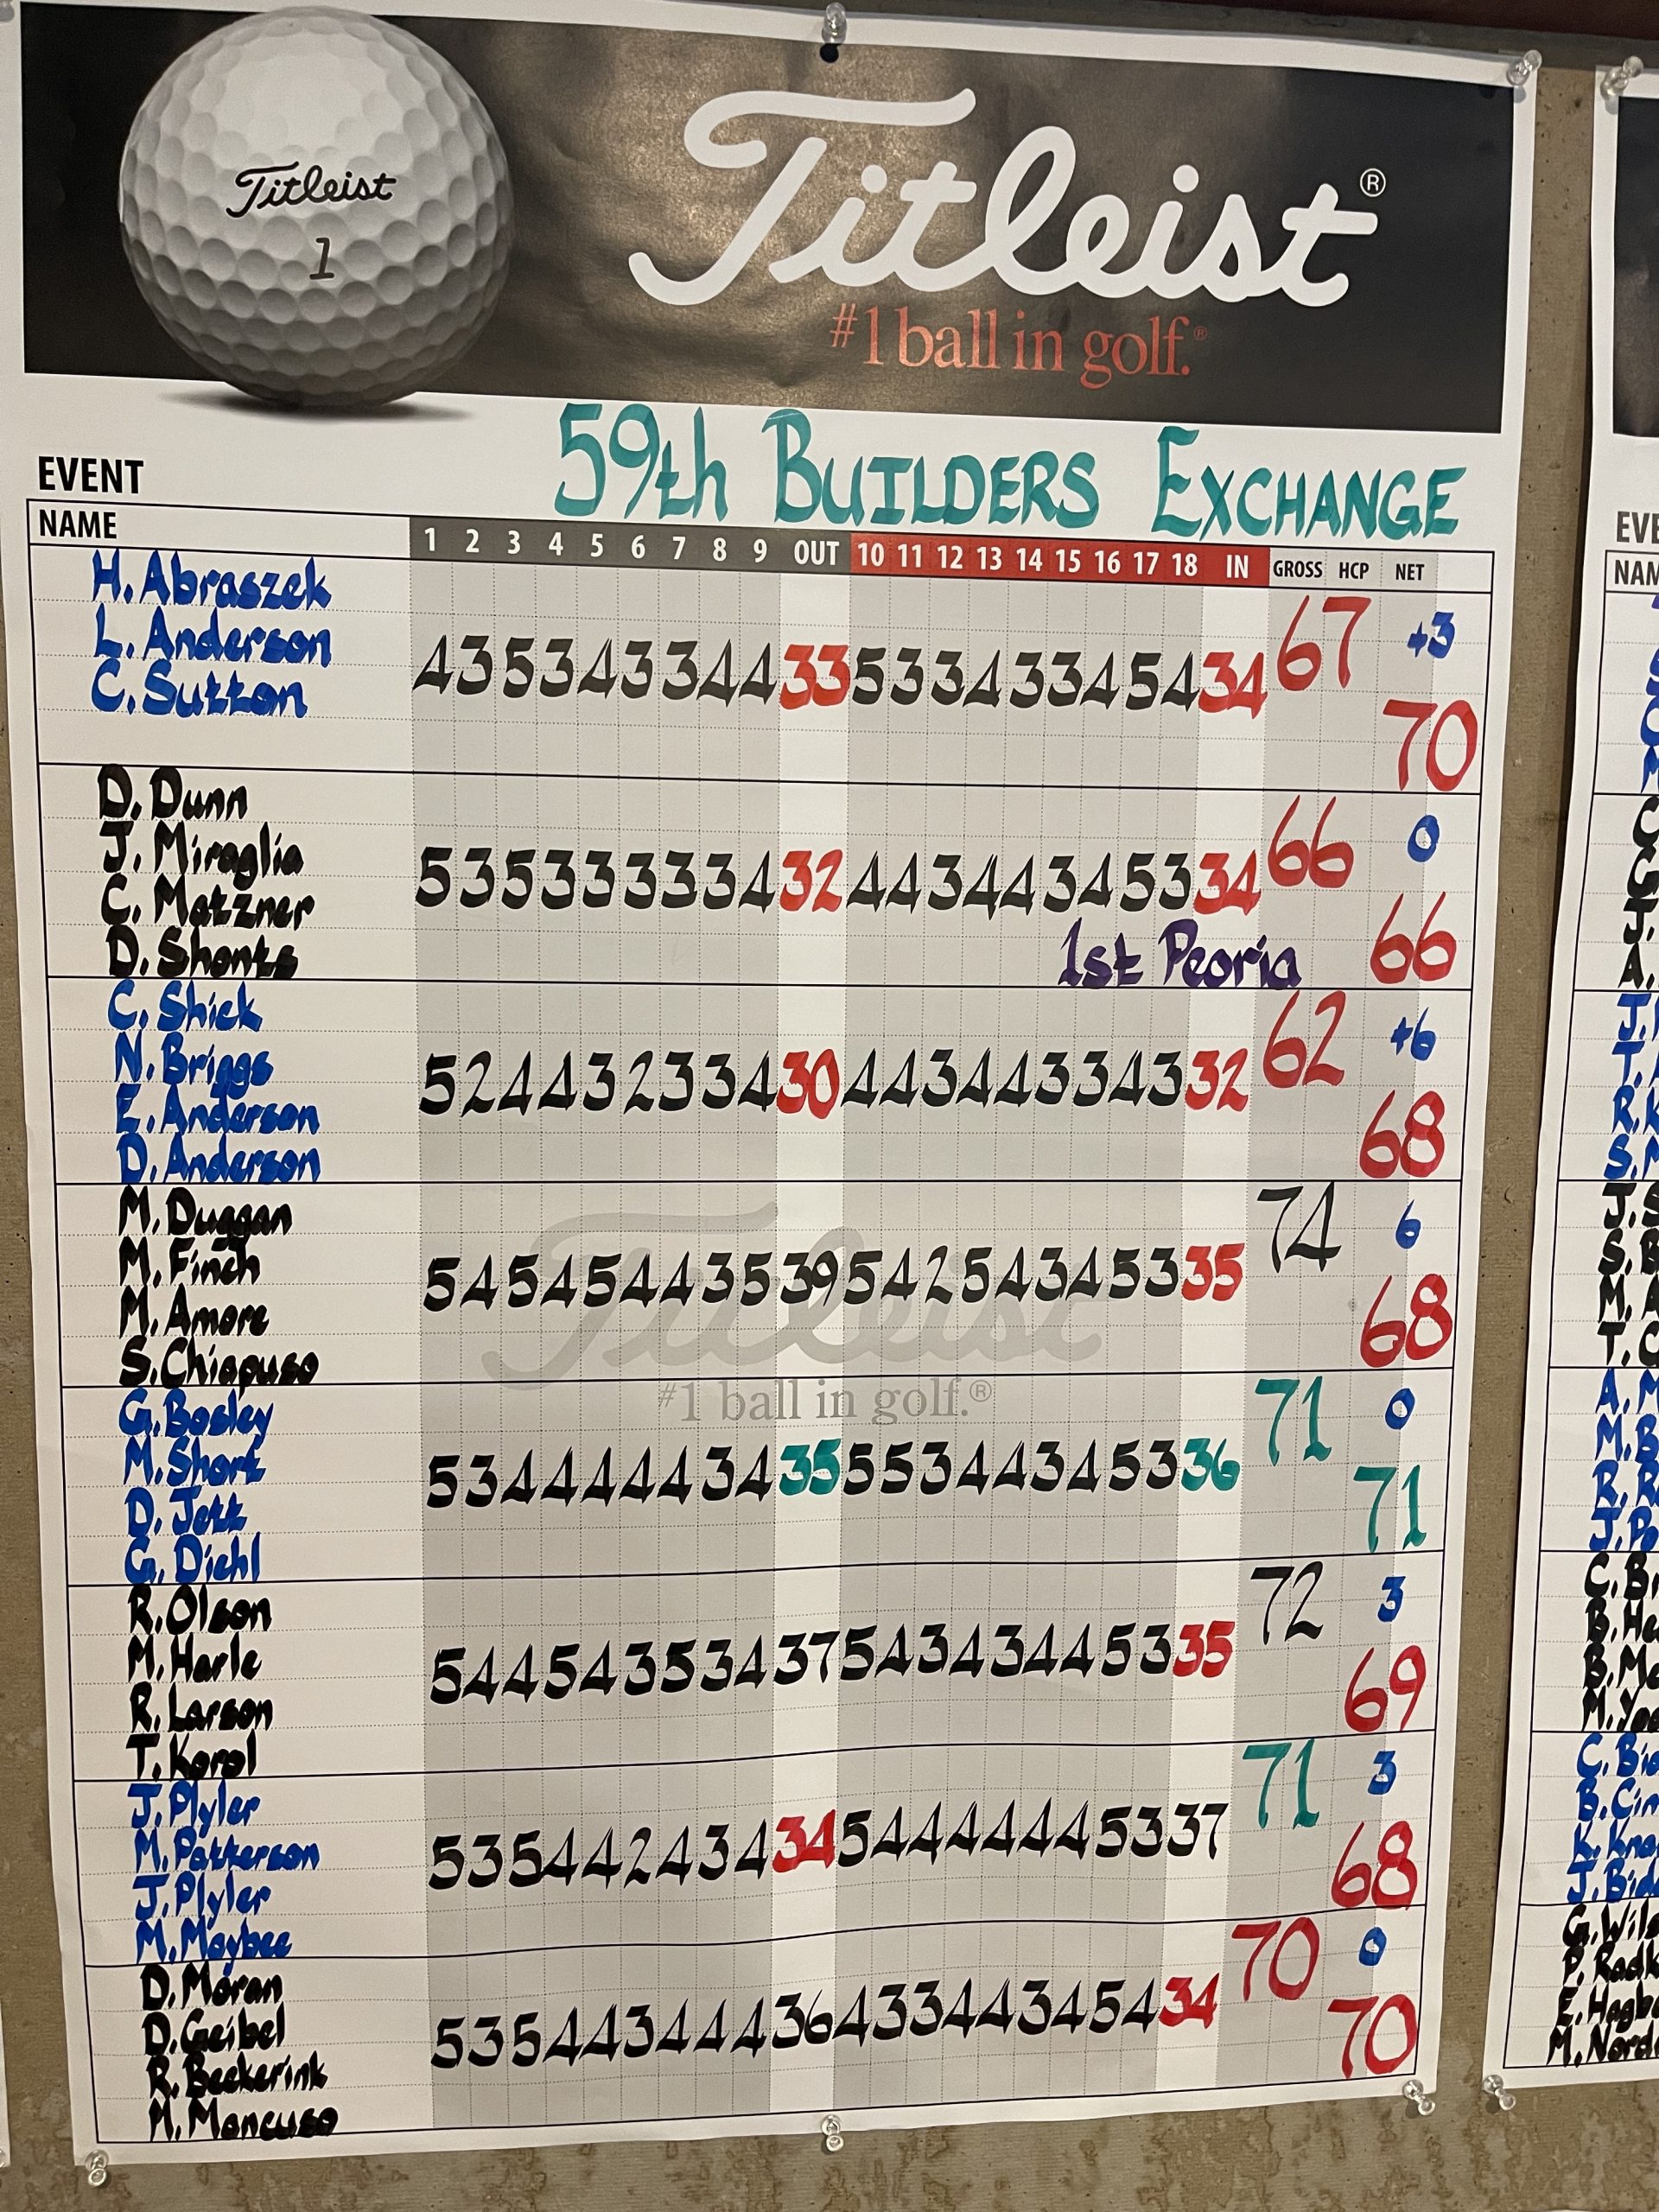 Titleist
1
Titleist®
#1 ball in golf.®
59th BUILDERS EXCHANGE
EVENT
NAME 1 2 3 4 5 6 7 8 9 OUT 10 11 12 13 14 15 16 17 18 IN GROSS HCP NET
H. Abraszek
L. Anderson
C. Sutton
4 3 5 3 4 3 3 4 4 33 5 3 3 4 3 3 4 5 4 34 67 +3
70
D. Dunn
J. Miraglia
C. Matzner
D. Shonts
5 3 5 3 3 3 3 3 4 32 4 4 3 4 4 3 4 5 3 34 66 0
1st Peoria 66
C. Shick
N. Briggs
E. Anderson
D. Anderson
5 2 4 4 3 2 3 3 4 30 4 4 3 4 4 3 3 4 3 32 62 +6
68
M. Duggan
M. Finch
M. Amore
S. Chiapuso
5 4 5 4 5 4 4 3 5 39 5 4 2 5 4 3 4 5 3 35 74 6
68
Titleist
#1 ball in golf.®
G. Bosley
M. Short
D. Jett
G. Diehl
5 3 4 4 4 4 4 3 4 35 5 5 3 4 4 3 4 5 3 36 71 0
71
R. Olson
M. Harle
R. Larson
T. Korol
5 4 4 5 4 3 5 3 4 37 5 4 3 4 3 4 4 5 3 35 72 3
69
J. Plyler
M. Patterson
J. Plyler
M. Maybee
5 3 5 4 4 2 4 3 4 34 5 4 4 4 4 4 4 5 3 37 71 3
68
D. Moran
D. Geibel
R. Beckerink
M. Mancuso
5 3 5 4 4 3 4 4 4 36 4 3 3 4 4 3 4 5 4 34 70 0
70